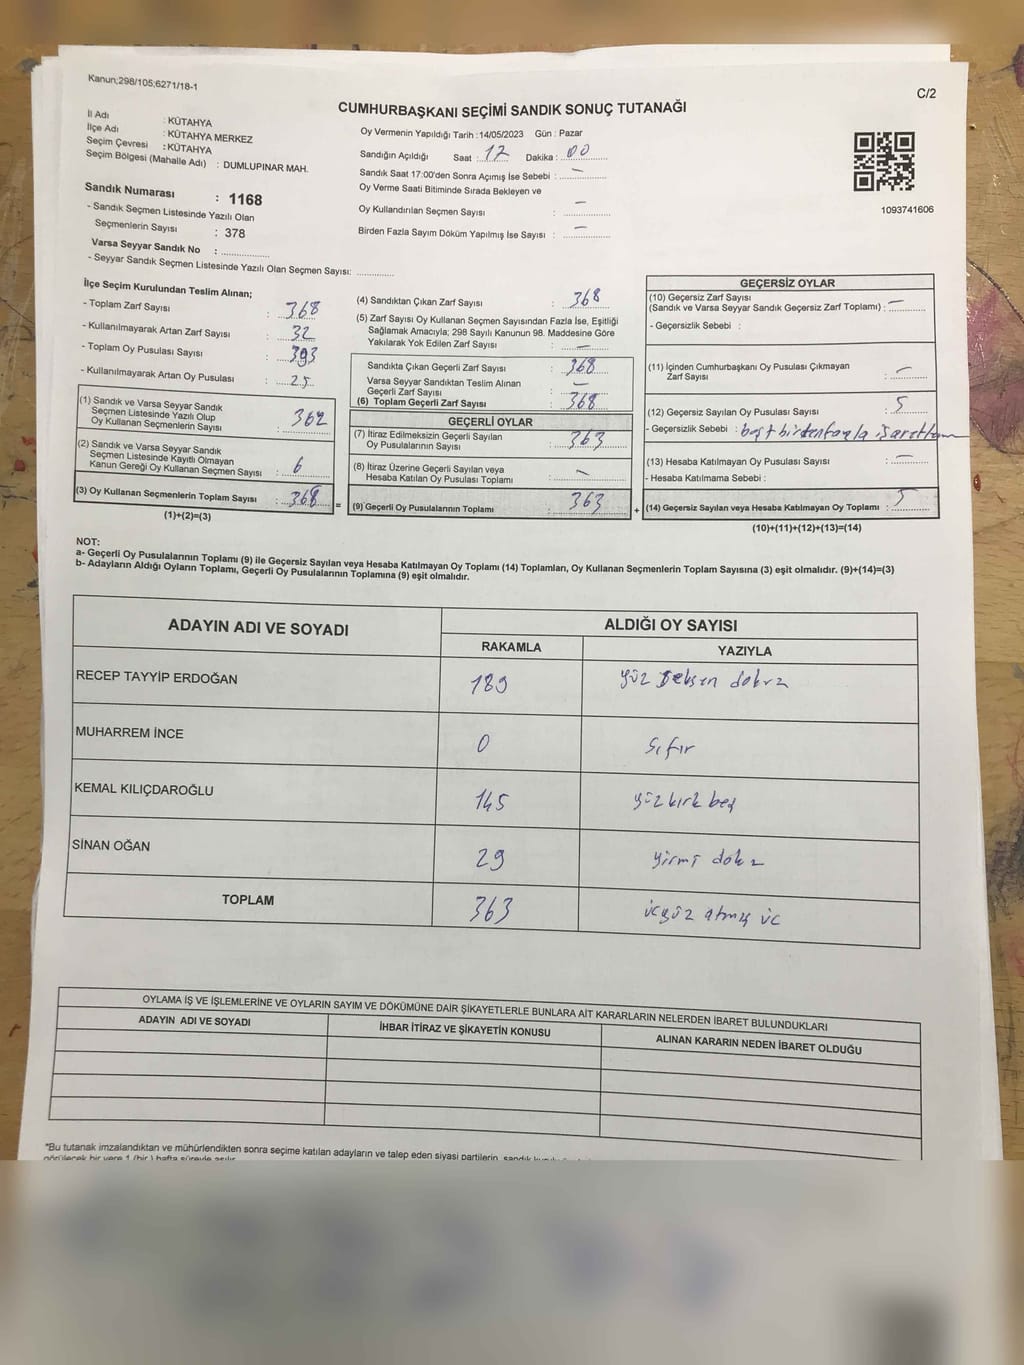 Kanun;298/105;6271/18-1
C/2
CUMHURBAŞKANI SEÇİMİ SANDIK SONUÇ TUTANAĞI
İl Adı : KÜTAHYA
İlçe Adı : KÜTAHYA MERKEZ
Seçim Çevresi : KÜTAHYA
Seçim Bölgesi (Mahalle Adı) : DUMLUPINAR MAH.
Sandık Numarası : 1168
- Sandık Seçmen Listesinde Yazılı Olan
Seçmenlerin Sayısı : 378
Varsa Seyyar Sandık No :
- Seyyar Sandık Seçmen Listesinde Yazılı Olan Seçmen Sayısı:
Oy Vermenin Yapıldığı Tarih :14/05/2023 Gün : Pazar
Sandığın Açıldığı Saat : 17 Dakika : 00
Sandık Saat 17:00'den Sonra Açımış İse Sebebi : —
Oy Verme Saati Bitiminde Sırada Bekleyen ve
Oy Kullandırılan Seçmen Sayısı : —
Birden Fazla Sayım Döküm Yapılmış İse Sayısı : —
1093741606
İlçe Seçim Kurulundan Teslim Alınan;
- Toplam Zarf Sayısı : 368
- Kullanılmayarak Artan Zarf Sayısı : 32
- Toplam Oy Pusulası Sayısı : 393
- Kullanılmayarak Artan Oy Pusulası : 25
(1) Sandık ve Varsa Seyyar Sandık
Seçmen Listesinde Yazılı Olup
Oy Kullanan Seçmenlerin Sayısı : 362
(2) Sandık ve Varsa Seyyar Sandık
Seçmen Listesinde Kayıtlı Olmayan
Kanun Gereği Oy Kullanan Seçmen Sayısı : 6
(3) Oy Kullanan Seçmenlerin Toplam Sayısı : 368 =
(1)+(2)=(3)
(4) Sandıktan Çıkan Zarf Sayısı : 368
(5) Zarf Sayısı Oy Kullanan Seçmen Sayısından Fazla İse, Eşitliği
Sağlamak Amacıyla; 298 Sayılı Kanunun 98. Maddesine Göre
Yakılarak Yok Edilen Zarf Sayısı : —
Sandıkta Çıkan Geçerli Zarf Sayısı : 368
Varsa Seyyar Sandıktan Teslim Alınan
Geçerli Zarf Sayısı : —
(6) Toplam Geçerli Zarf Sayısı : 368
GEÇERLİ OYLAR
(7) İtiraz Edilmeksizin Geçerli Sayılan
Oy Pusulalarının Sayısı : 363
(8) İtiraz Üzerine Geçerli Sayılan veya
Hesaba Katılan Oy Pusulası Toplamı : —
(9) Geçerli Oy Pusulalarının Toplamı : 363 +
GEÇERSİZ OYLAR
(10) Geçersiz Zarf Sayısı
(Sandık ve Varsa Seyyar Sandık Geçersiz Zarf Toplamı) : —
- Geçersizlik Sebebi :
(11) İçinden Cumhurbaşkanı Oy Pusulası Çıkmayan
Zarf Sayısı : —
(12) Geçersiz Sayılan Oy Pusulası Sayısı : 5
- Geçersizlik Sebebi : boşt birdenfazla işarettam
(13) Hesaba Katılmayan Oy Pusulası Sayısı : —
- Hesaba Katılmama Sebebi :
(14) Geçersiz Sayılan veya Hesaba Katılmayan Oy Toplamı : 5
(10)+(11)+(12)+(13)=(14)
NOT:
a- Geçerli Oy Pusulalarının Toplamı (9) ile Geçersiz Sayılan veya Hesaba Katılmayan Oy Toplamı (14) Toplamları, Oy Kullanan Seçmenlerin Toplam Sayısına (3) eşit olmalıdır. (9)+(14)=(3)
b- Adayların Aldığı Oyların Toplamı, Geçerli Oy Pusulalarının Toplamına (9) eşit olmalıdır.
ADAYIN ADI VE SOYADI
ALDIĞI OY SAYISI
RAKAMLA YAZIYLA
RECEP TAYYİP ERDOĞAN 189 yüz seksen dokuz
MUHARREM İNCE 0 sıfır
KEMAL KILIÇDAROĞLU 145 yüz kırk beş
SİNAN OĞAN 29 yirmi dokuz
TOPLAM 363 üçyüz atmış üç
OYLAMA İŞ VE İŞLEMLERİNE VE OYLARIN SAYIM VE DÖKÜMÜNE DAİR ŞİKAYETLERLE BUNLARA AİT KARARLARIN NELERDEN İBARET BULUNDUKLARI
ADAYIN ADI VE SOYADI
İHBAR İTİRAZ VE ŞİKAYETİN KONUSU
ALINAN KARARIN NEDEN İBARET OLDUĞU
*Bu tutanak imzalandıktan ve mühürlendikten sonra seçime katılan adayların ve talep eden siyasi partilerin, sandık